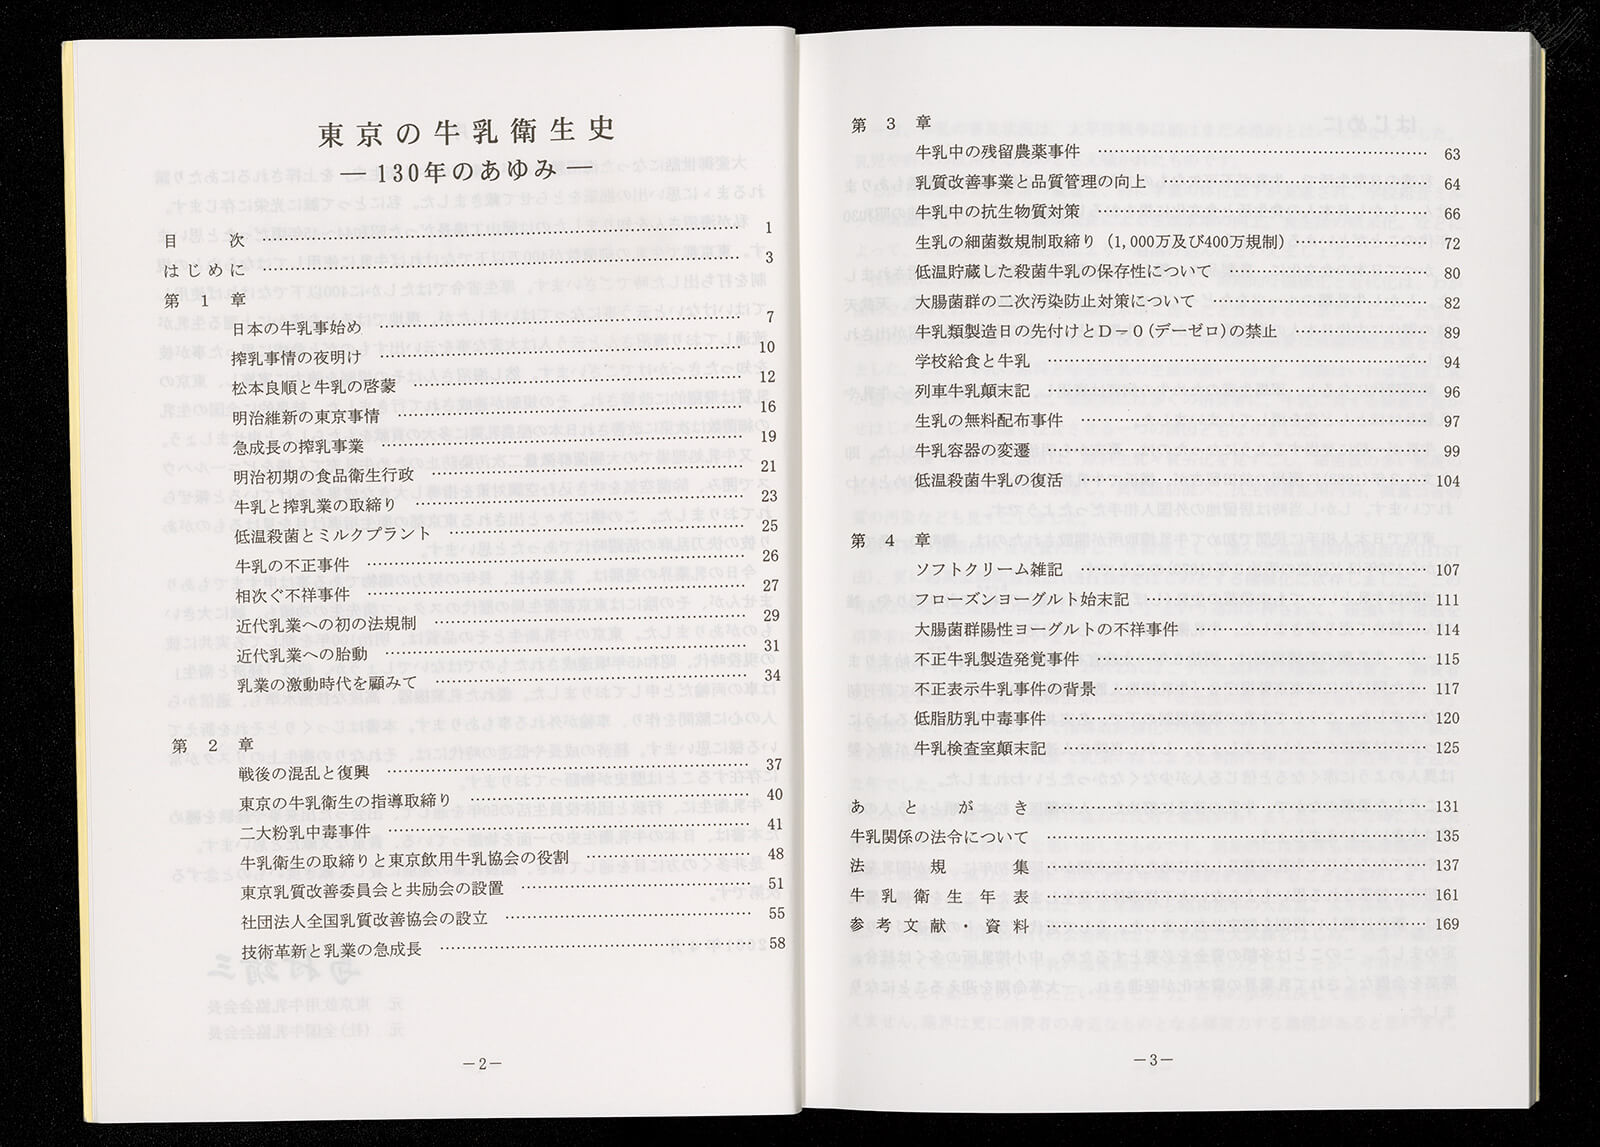 東京の牛乳衛生史
― 130年のあゆみ ―
目次 …… 1
はじめに …… 3
第1章
日本の牛乳事始め …… 7
搾乳事情の夜明け …… 10
松本良順と牛乳の啓蒙 …… 12
明治維新の東京事情 …… 16
急成長の搾乳事業 …… 19
明治初期の食品衛生行政 …… 21
牛乳と搾乳業の取締り …… 23
低温殺菌とミルクプラント …… 25
牛乳の不正事件 …… 26
相次ぐ不祥事件 …… 27
近代乳業への初の法規制 …… 29
近代乳業への胎動 …… 31
乳業の激動時代を顧みて …… 34
第2章
戦後の混乱と復興 …… 37
東京の牛乳衛生の指導取締り …… 40
二大粉乳中毒事件 …… 41
牛乳衛生の取締りと東京飲用牛乳協会の役割 …… 48
東京乳質改善委員会と共励会の設置 …… 51
社団法人全国乳質改善協会の設立 …… 55
技術革新と乳業の急成長 …… 58
―2―
第3章
牛乳中の残留農薬事件 …… 63
乳質改善事業と品質管理の向上 …… 64
牛乳中の抗生物質対策 …… 66
生乳の細菌数規制取締り（1,000万及び400万規制） …… 72
低温貯蔵した殺菌牛乳の保存性について …… 80
大腸菌群の二次汚染防止対策について …… 82
牛乳類製造日の先付けとD－0（デーゼロ）の禁止 …… 89
学校給食と牛乳 …… 94
列車牛乳顛末記 …… 96
生乳の無料配布事件 …… 97
牛乳容器の変遷 …… 99
低温殺菌牛乳の復活 …… 104
第4章
ソフトクリーム雑記 …… 107
フローズンヨーグルト始末記 …… 111
大腸菌群陽性ヨーグルトの不祥事件 …… 114
不正牛乳製造発覚事件 …… 115
不正表示牛乳事件の背景 …… 117
低脂肪乳中毒事件 …… 120
牛乳検査室顛末記 …… 125
あとがき …… 131
牛乳関係の法令について …… 135
法規集 …… 137
牛乳衛生年表 …… 161
参考文献・資料 …… 169
―3―